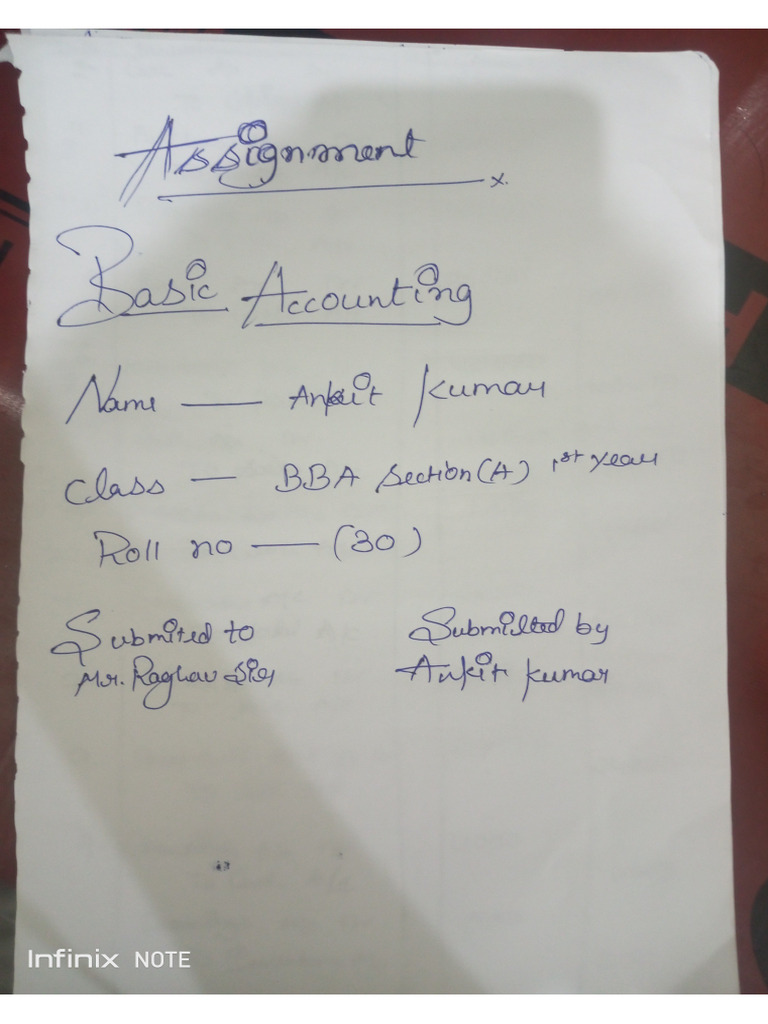 Assignment
x.
Basic Accounting
Name — Ankit Kumar
Class — BBA Section (A) 1st year
Roll no — (30)
Submited to
Submitted by
Mr. Raghav
Ankit Kumar
Infinix NOTE